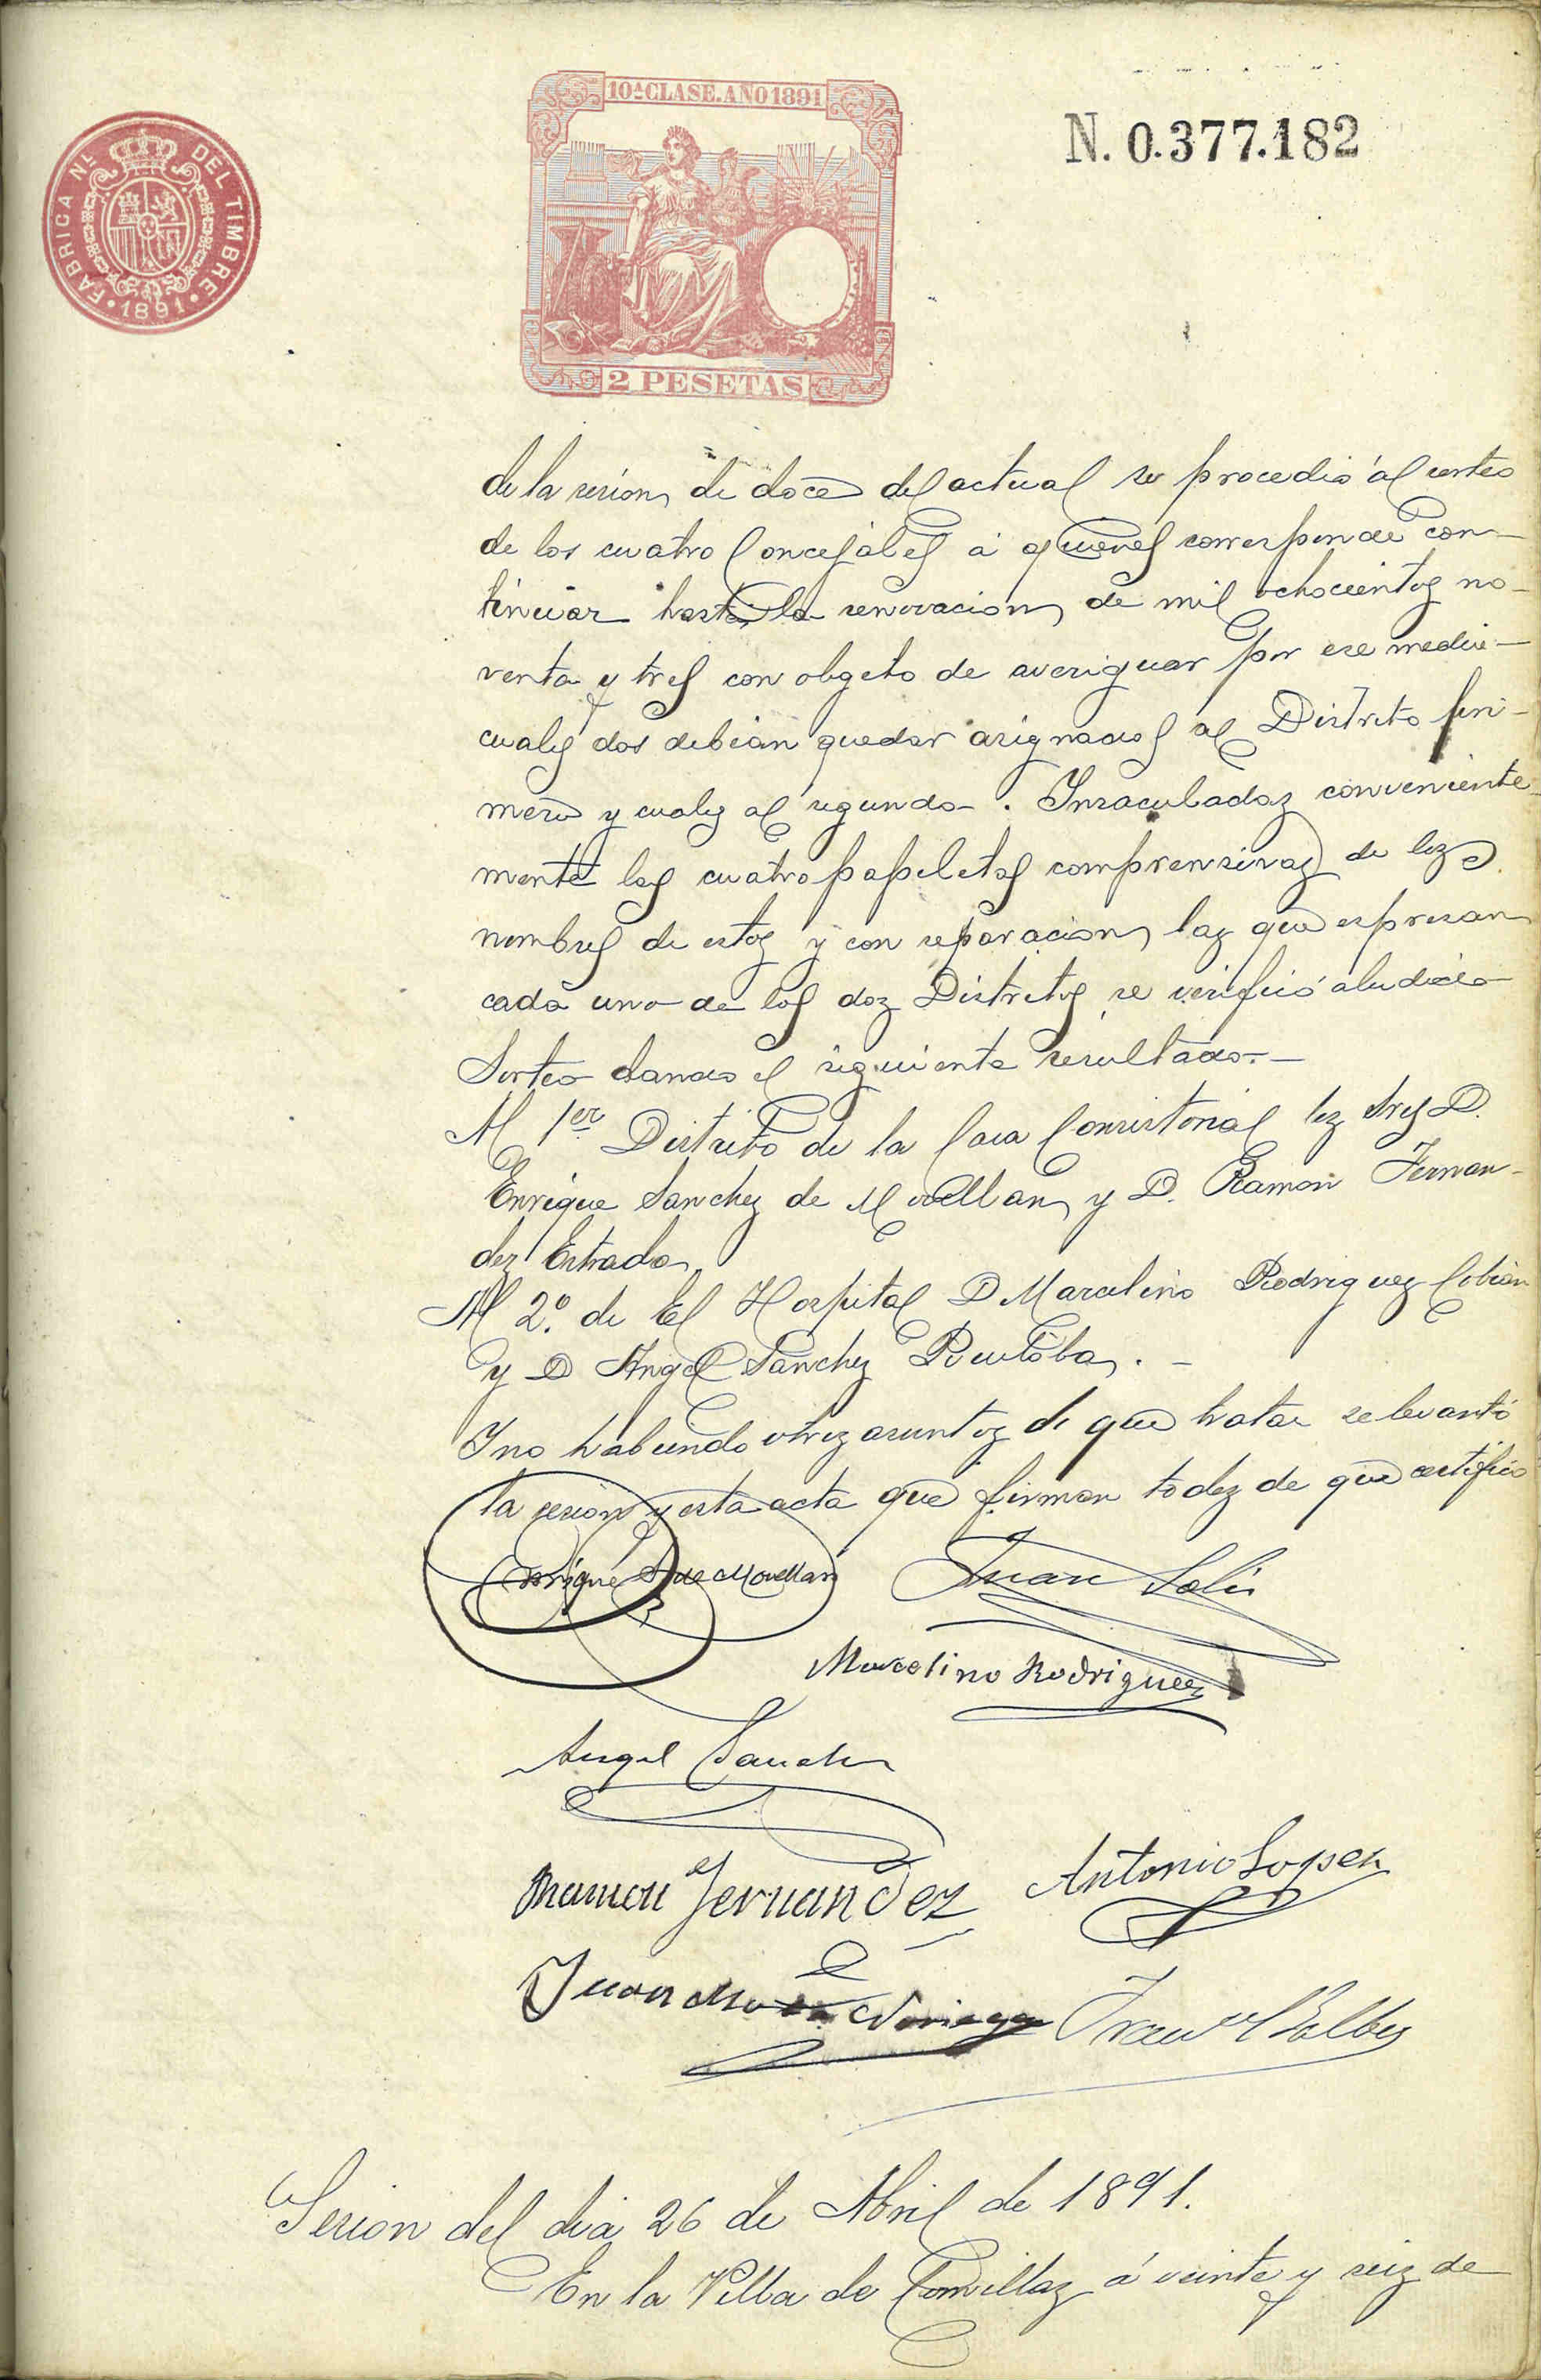 10ª CLASE. AÑO 1891
N. 0.377.182
FABRICA Nl. DEL TIMBRE
1891
2 PESETAS
de la sesion de doce del actual se procedió al sorteo
de los cuatro Concejales á quienes corresponde con-
tinuar hasta la renovacion de mil ochocientos no-
venta y tres con obgeto de averiguar por ese medio
cuales dos debian quedar asignados al Distrito pri-
mero y cuales al segundo. Insaculadas conveniente-
mente las cuatro papeletas comprensivas de los
nombres de estos y con separacion las que espresan
cada uno de los dos Distritos se verificó aludido
Sorteo dando el siguiente resultado.-
Al 1er Distrito de la Casa Consistorial los Sres D.
Enrique Sanchez de Movellan y D. Ramon Fernan-
dez Estrada
Al 2º. de El Hospital D Marcelino Rodriguez Cobian
y D Angel Sanchez Ruiloba. -
Y no habiendo otros asuntos de que tratar se levantó
la sesion y esta acta que firman todos de que certifico
Enrique S. de Movellan
Juan Solis
Marcelino Rodriguez
Angel Sanchez
Ramon Fernandez
Antonio Lopez
Juan Noriega
Sesion del dia 26 de Abril de 1891.
En la Villa de Comillas á veinte y seis de